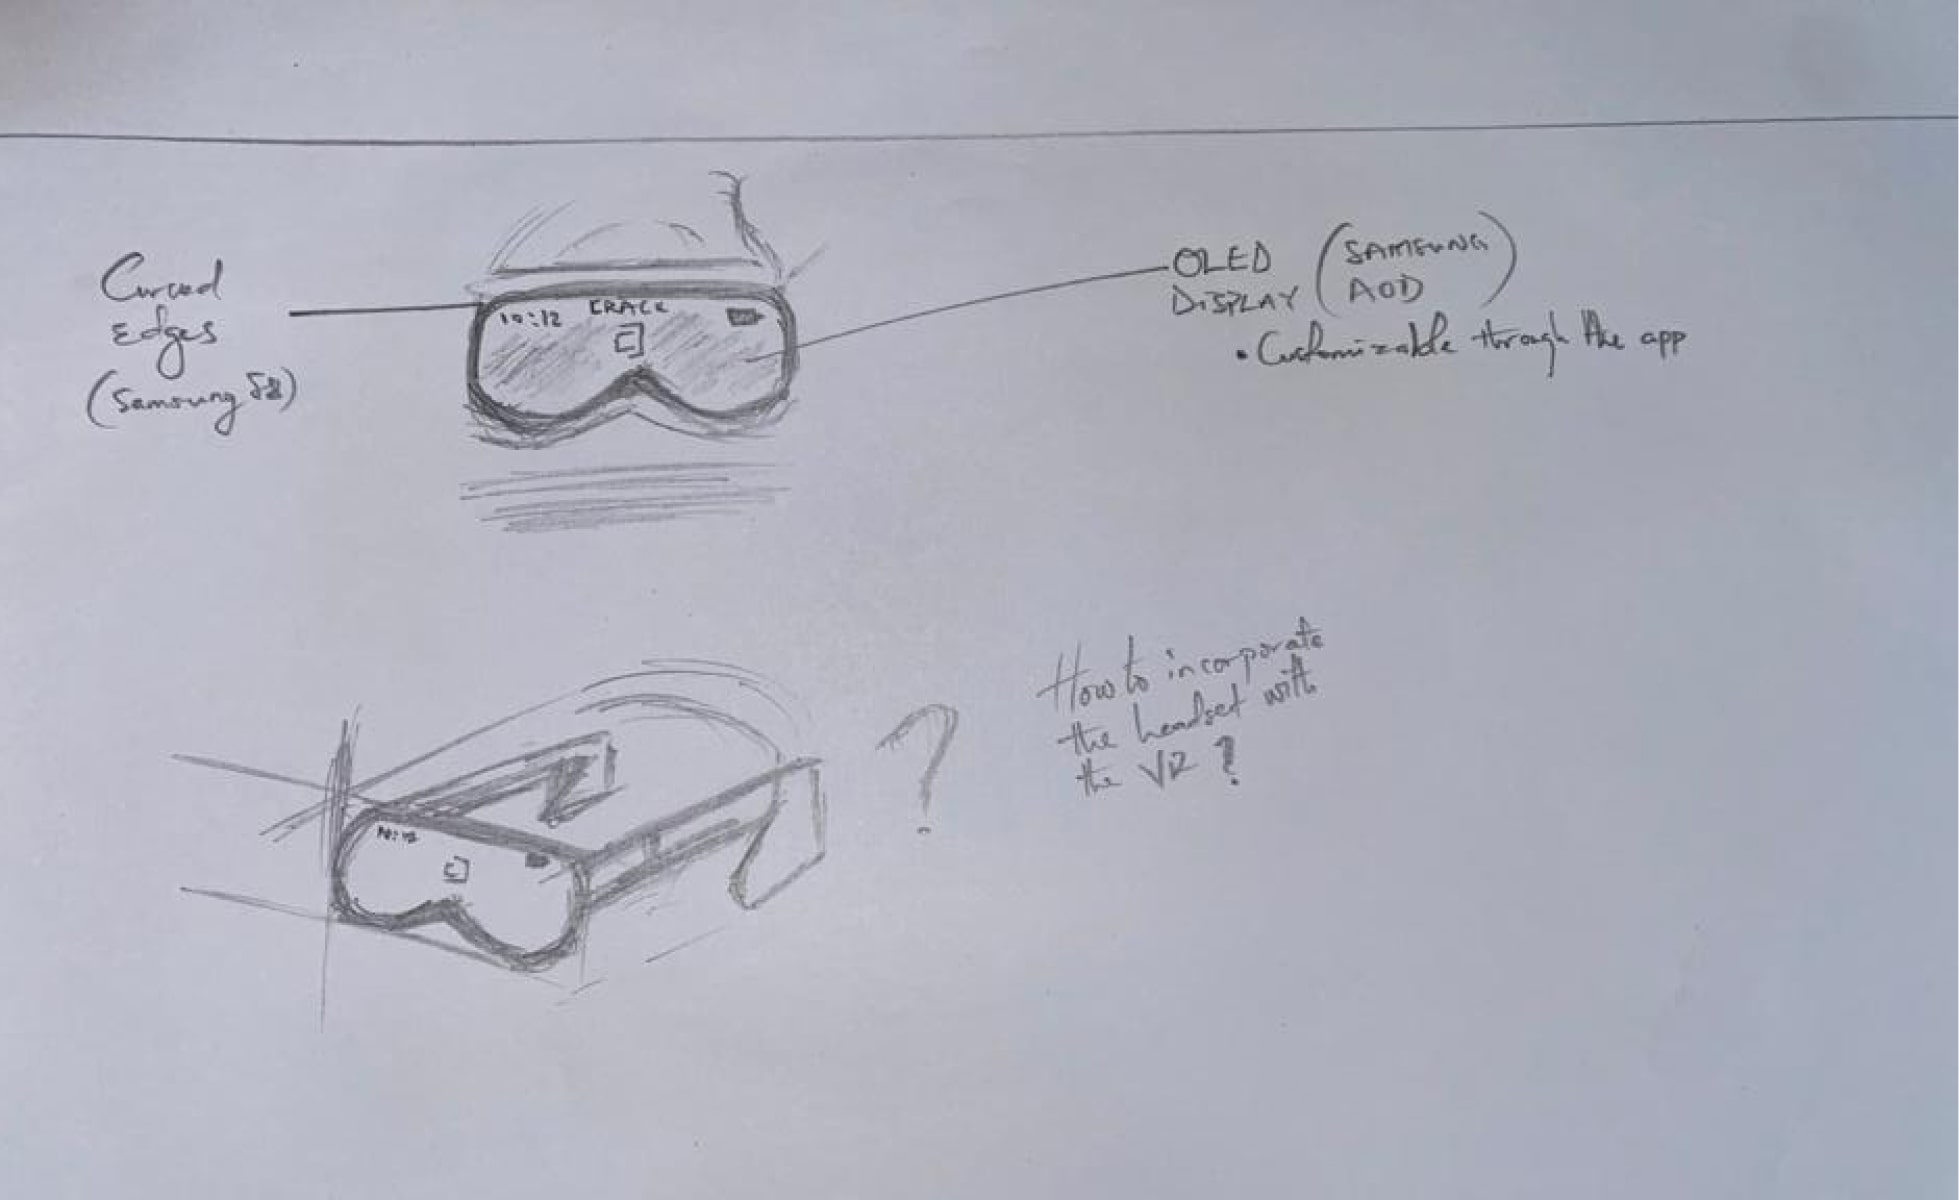 Curved
Edges
(Samsung S8)
10:12
CRACK
OLED
DISPLAY
(SAMSUNG
AOD)
• Customizable through the app
How to incorporate
the headset with
the VR ?
10:12
?